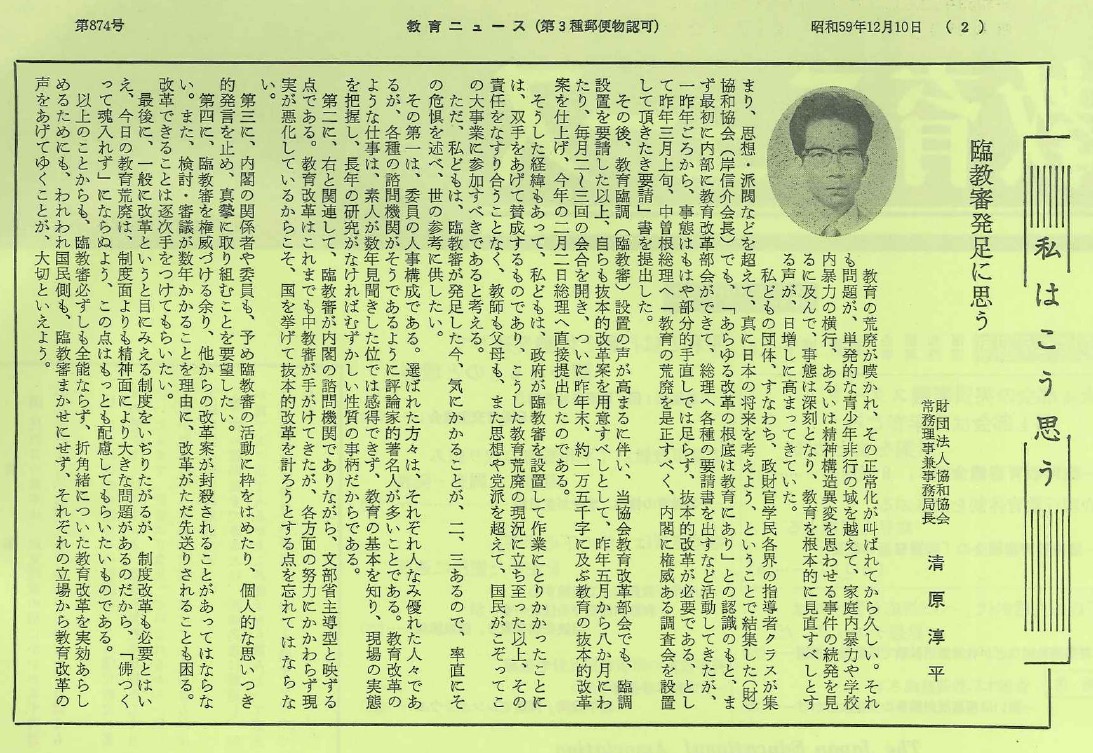 第874号
教育ニュース (第3種郵便物認可)
昭和59年12月10日 (2)
私はこう思う
臨教審発足に思う
財団法人協和協会
常務理事兼事務局長
清原淳平
教育の荒廃が嘆かれ、その正常化が叫ばれてから久しい。それ
も問題が、単発的な青少年非行の域を越えて、家庭内暴力や学校
内暴力の横行、あるいは精神構造異変を思わせる事件の続発を見
るに及んで、事態は深刻となり、教育を根本的に見直すべしとす
る声が、日増しに高まってきていた。
私どもの団体、すなわち、政財官学民各界の指導者クラスが集
まり、思想・派閥などを超えて、真に日本の将来を考えよう、ということで結集した(財)
協和協会(岸信介会長)でも、「あらゆる改革の根底は教育にあり」との認識のもと、ま
ず最初に内部に教育改革部会ができて、総理へ各種の要請書を出すなど活動してきたが、
一昨年ごろから、事態はもはや部分的手直しでは足らず、抜本的改革が必要である、とし
て昨年三月上旬、中曽根総理へ「教育の荒廃を是正すべく、内閣に権威ある調査会を設置
して頂きたき要請」書を提出した。
その後、教育臨調(臨教審)設置の声が高まるに伴い、当協会教育改革部会でも、臨調
設置を要請した以上、自らも抜本的改革案を用意すべしとして、昨年五月から八か月にわ
たり、毎月二〜三回の会合を開き、ついに昨年末、約一万五千字に及ぶ教育の抜本的改革
案を仕上げ、今年の二月二日総理へ直接提出したのである。
そうした経緯もあって、私どもは、政府が臨教審を設置して作業にとりかかったことに
は、双手をあげて賛成するものであり、こうした教育荒廃の現況に立ち至った以上、その
責任をなすり合うことなく、教師も父母も、また思想や党派を超えて、国民がこぞってこ
の大事業に参加すべきであると考える。
ただ、私どもは、臨教審が発足した今、気にかかることが、二、三あるので、率直にそ
の危惧を述べ、世の参考に供したい。
その第一は、委員の人事構成である。選ばれた方々は、それぞれ人なみ優れた人々であ
るが、各種の諮問機関がそうであるように評論家的著名人が多いことである。教育改革の
ような仕事は、素人が数年見聞きした位では感得できず、教育の基本を知り、現場の実態
を把握し、長年の研究がなければむずかしい性質の事柄だからである。
第二に、右と関連して、臨教審が内閣の諮問機関でありながら、文部省主導型と映ずる
点である。教育改革はこれまでも中教審が手がけてきたが、各方面の努力にかかわらず現
実が悪化しているからこそ、国を挙げて抜本的改革を計ろうとする点を忘れてはならな
い。
第三に、内閣の関係者や委員も、予め臨教審の活動に枠をはめたり、個人的な思いつき
的発言を止め、真摯に取り組むことを要望したい。
第四に、臨教審を権威づける余り、他からの改革案が封殺されることがあってはならな
い。また、検討・審議が数年かかることを理由に、改革がただ先送りされることも困る。
改革できることは逐次手をつけてもらいたい。
最後に、一般に改革というと目にみえる制度をいぢりたがるが、制度改革も必要とはい
え、今日の教育荒廃は、制度面よりも精神面により大きな問題があるのだから、「仏つく
って魂入れず」にならぬよう、この点はもっとも配慮してもらいたいものである。
以上のことからも、臨教審必ずしも全能ならず、折角緒についた教育改革を実効あらし
めるためにも、われわれ国民側も、臨教審まかせにせず、それぞれの立場から教育改革の
声をあげてゆくことが、大切といえよう。